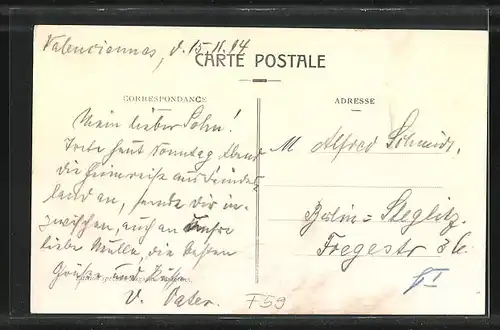 Valenciennes, d. 15.11.14
CARTE POSTALE
CORRESPONDANCE
ADRESSE
Mein lieber Sohn!
Trete heut Sonntag Abend
die Heimreise aus Feindes
land an, sende dir in-
zwischen, auch an Unsre
liebe Mutter, die besten
Grüße und Küsse
V. Vater.
M Alfred Schmidt,
Berlin=Steglitz.
Fregestr
F59